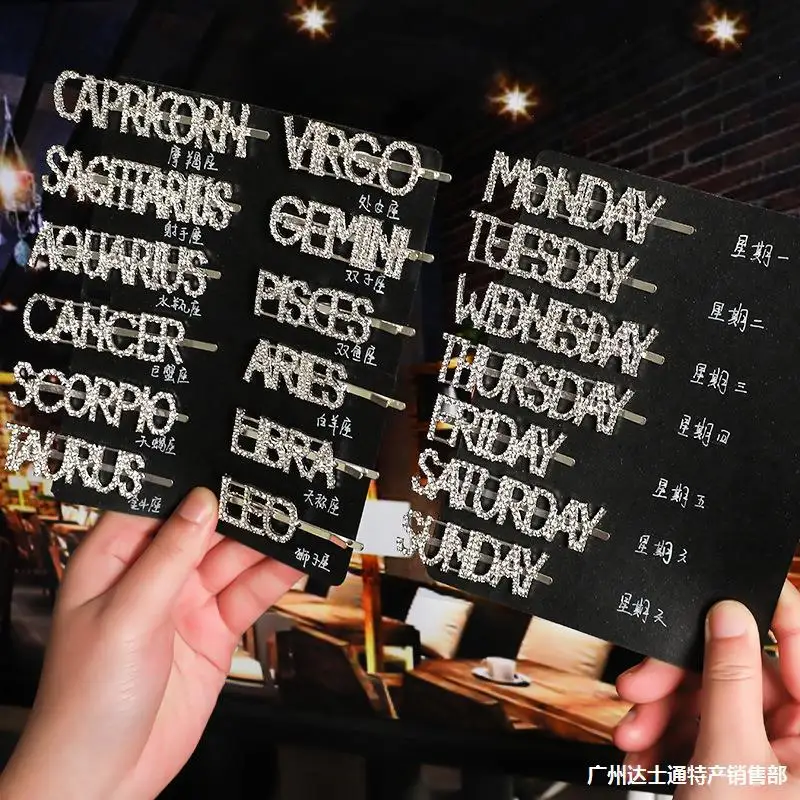 CAPRICORN
摩羯座
SAGITTARIUS
射手座
AQUARIUS
水瓶座
CANCER
巨蟹座
SCORPIO
天蝎座
TAURUS
金牛座
VIRGO
处女座
GEMINI
双子座
PISCES
双鱼座
ARIES
白羊座
LIBRA
天称座
LEO
狮子座
MONDAY
星期一
TUESDAY
星期二
WEDNESDAY
星期三
THURSDAY
星期四
FRIDAY
星期五
SATURDAY
星期六
SUNDAY
星期天
广州达士通特产销售部